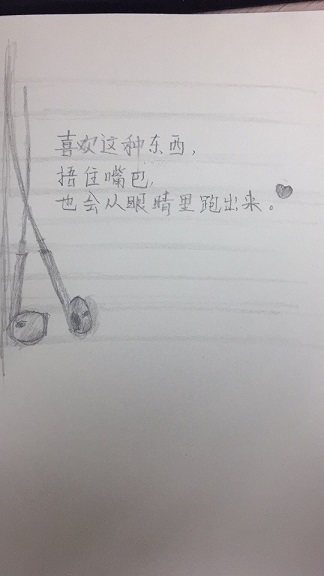 喜欢这种东西，
捂住嘴巴，
也会从眼睛里跑出来。